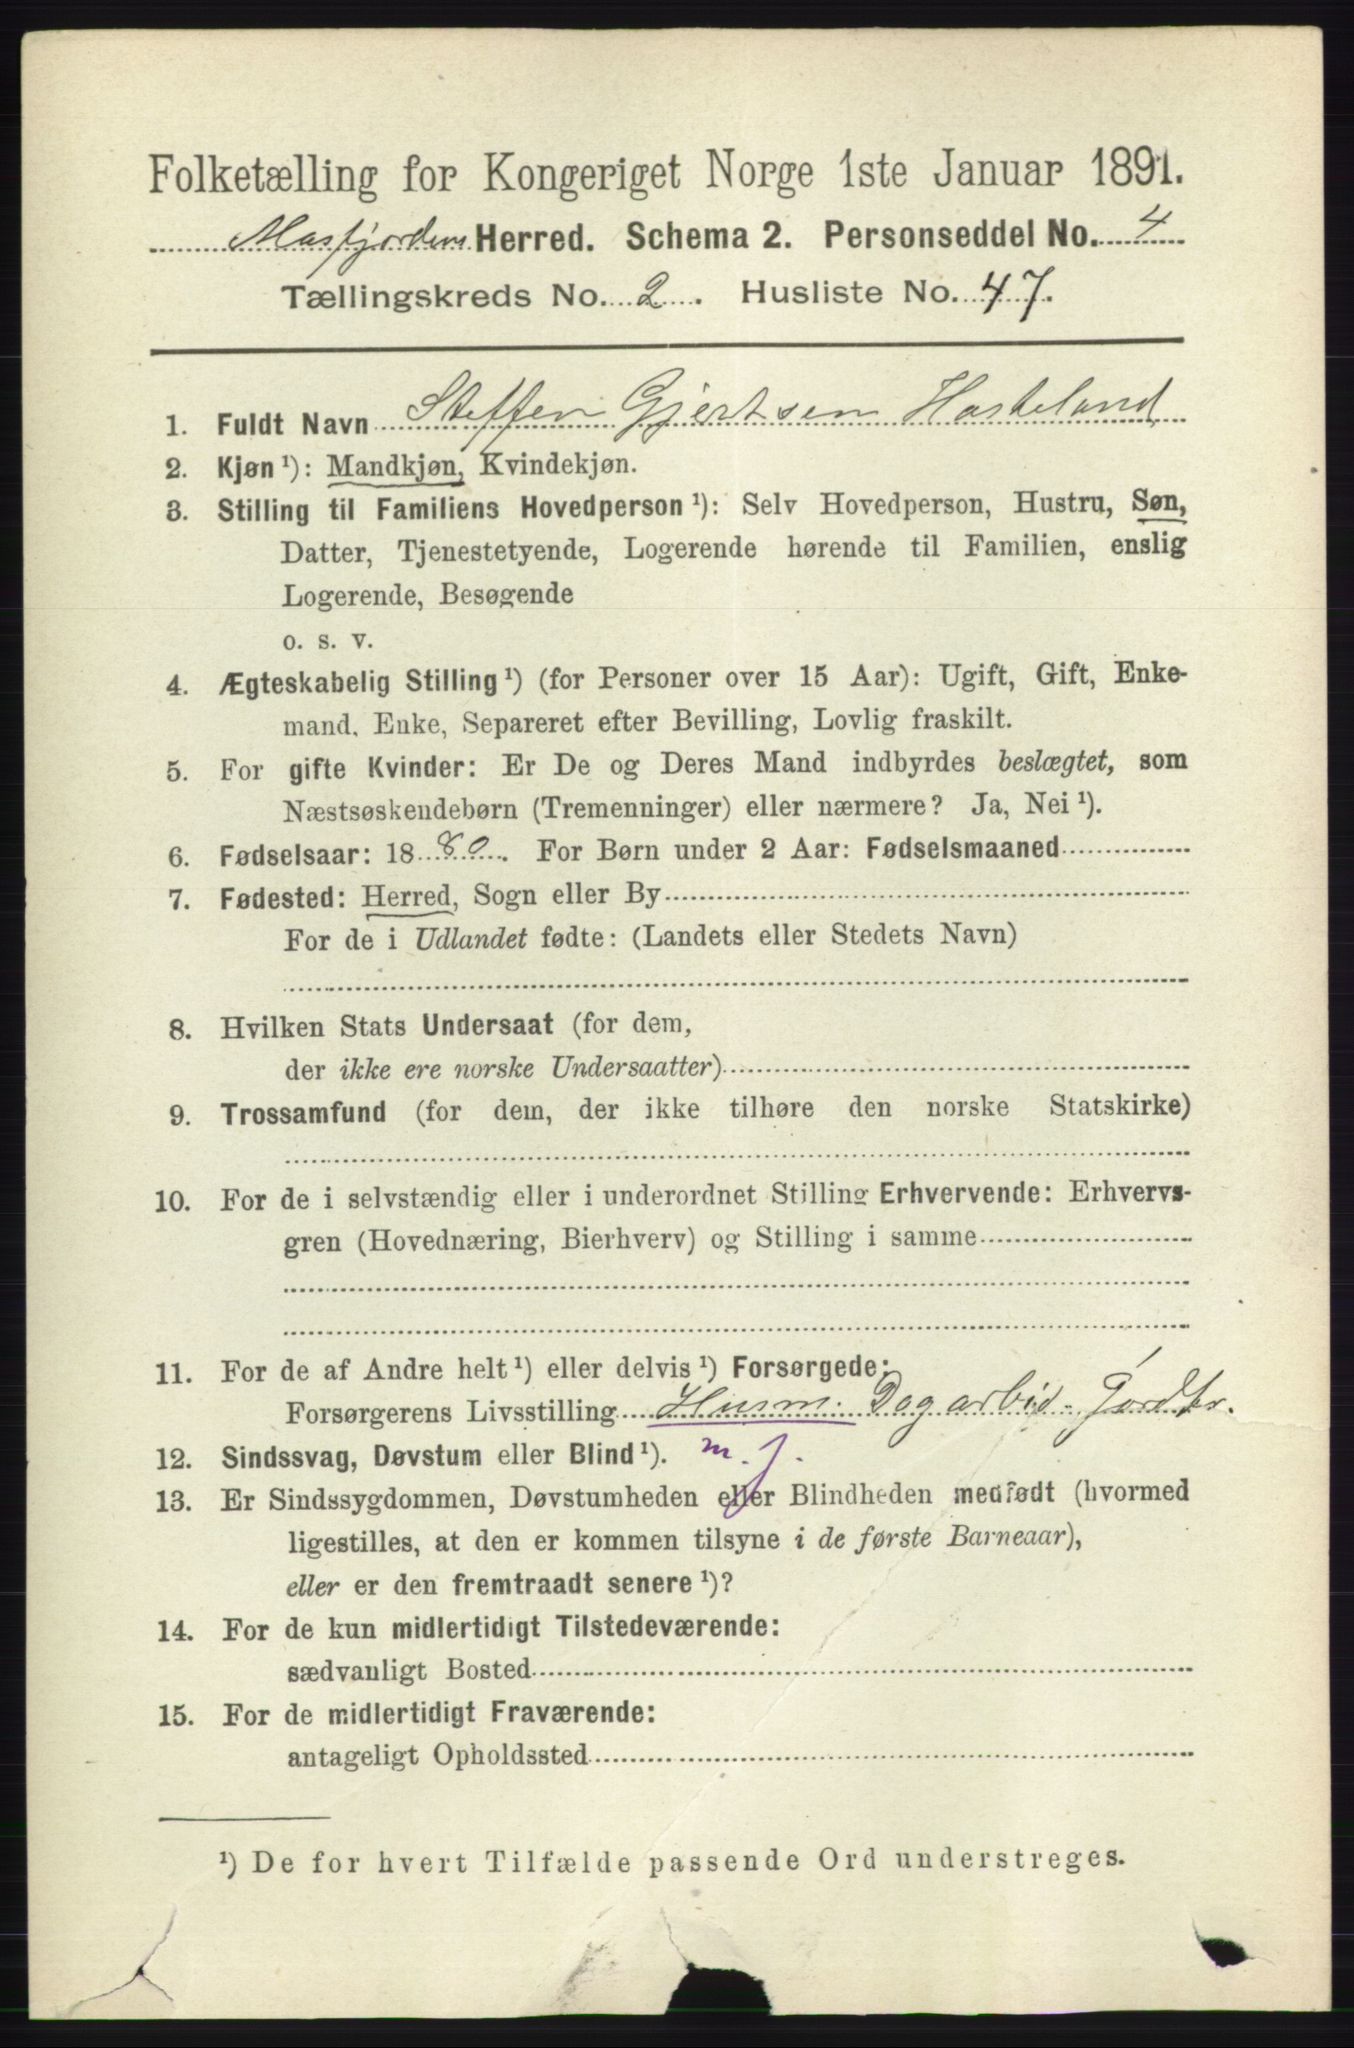 Folketælling for Kongeriget Norge 1ste Januar 1891.
Masfjorden Herred. Schema 2. Personseddel No. 4
Tællingskreds No. 2. Husliste No. 47.
1. Fuldt Navn Steffen Gjertsen Hasteland
2. Kjøn¹): Mandkjøn, Kvindekjøn.
3. Stilling til Familiens Hovedperson¹): Selv Hovedperson, Hustru, Søn,
Datter, Tjenestetyende, Logerende hørende til Familien, enslig
Logerende, Besøgende
o. s. v.
4. Ægteskabelig Stilling¹) (for Personer over 15 Aar): Ugift, Gift, Enke-
mand, Enke, Separeret efter Bevilling, Lovlig fraskilt.
5. For gifte Kvinder: Er De og Deres Mand indbyrdes beslægtet, som
Næstsøskendebørn (Tremenninger) eller nærmere? Ja, Nei¹).
6. Fødselsaar: 1880. For Børn under 2 Aar: Fødselsmaaned
7. Fødested: Herred, Sogn eller By
For de i Udlandet fødte: (Landets eller Stedets Navn)
8. Hvilken Stats Undersaat (for dem,
der ikke ere norske Undersaatter)
9. Trossamfund (for dem, der ikke tilhøre den norske Statskirke)
10. For de i selvstændig eller i underordnet Stilling Erhvervende: Erhvervs-
gren (Hovednæring, Bierhverv) og Stilling i samme
11. For de af Andre helt¹) eller delvis¹) Forsørgede:
Forsørgerens Livsstilling Husm. Dagarbid-
12. Sindssvag, Døvstum eller Blind¹). m. j.
13. Er Sindssygdommen, Døvstumheden eller Blindheden medfødt (hvormed
ligestilles, at den er kommen tilsyne i de første Barneaar),
eller er den fremtraadt senere¹)?
14. For de kun midlertidigt Tilstedeværende:
sædvanligt Bosted
15. For de midlertidigt Fraværende:
antageligt Opholdssted
¹) De for hvert Tilfælde passende Ord understreges.